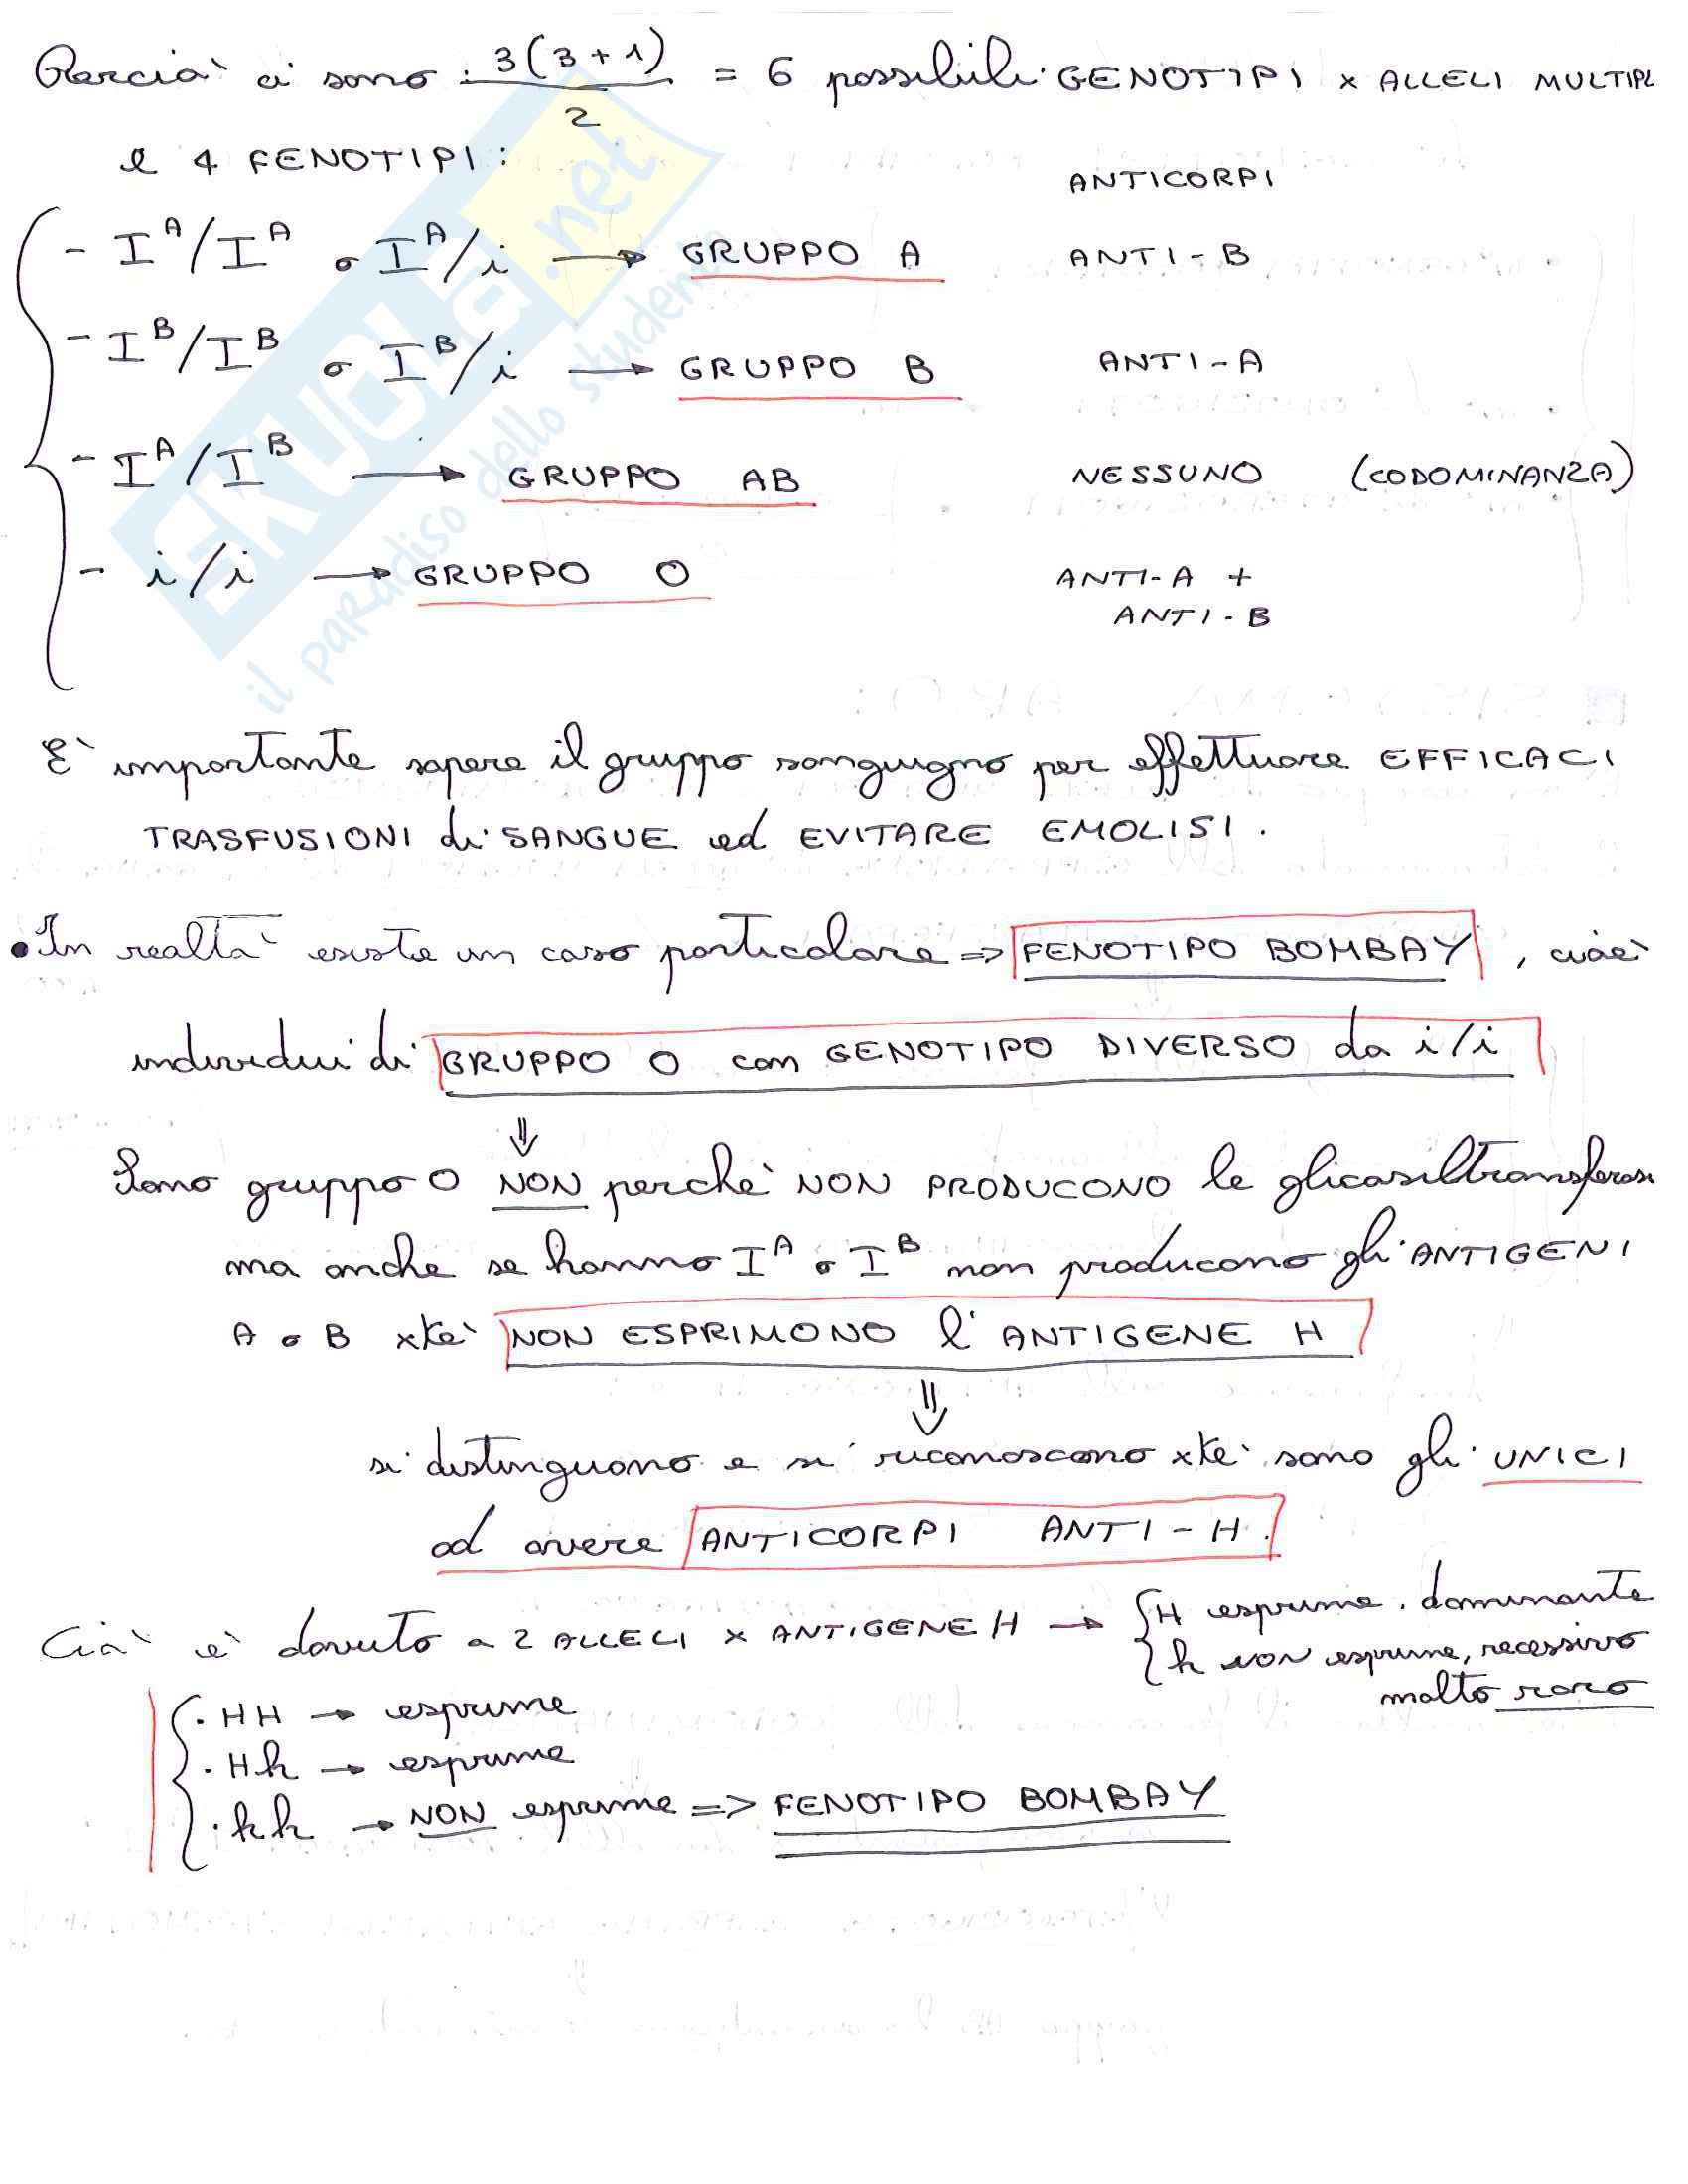 Perciò ci sono 3(3+1)/2 = 6 possibili GENOTIPI x ALLELI MULTIPL
e 4 FENOTIPI:
ANTICORPI
- I^A/I^A o I^A/i → GRUPPO A ANTI-B
- I^B/I^B o I^B/i → GRUPPO B ANTI-A
- I^A/I^B → GRUPPO AB NESSUNO (CODOMINANZA)
- i/i → GRUPPO O ANTI-A +
ANTI-B
SKUOLA.net
il paradiso dello studente
E' importante sapere il gruppo sanguigno per effettuare EFFICACI
TRASFUSIONI di SANGUE ed EVITARE EMOLISI.
• In realtà esiste un caso particolare => FENOTIPO BOMBAY, cioè
individui di GRUPPO O con GENOTIPO DIVERSO da i/i
⇓
Sono gruppo O NON perchè NON PRODUCONO le glicosiltransferasi
ma anche se hanno I^A o I^B non producono gli ANTIGENI
A o B xkè NON ESPRIMONO l'ANTIGENE H
⇓
si distinguono e si riconoscono xkè sono gli UNICI
ad avere ANTICORPI ANTI-H.
Ciò è dovuto a 2 ALLELI x ANTIGENE H → { H esprime, dominante
h NON esprime, recessivo
molto raro
· HH → esprime
· Hh → esprime
· hh → NON esprime => FENOTIPO BOMBAY